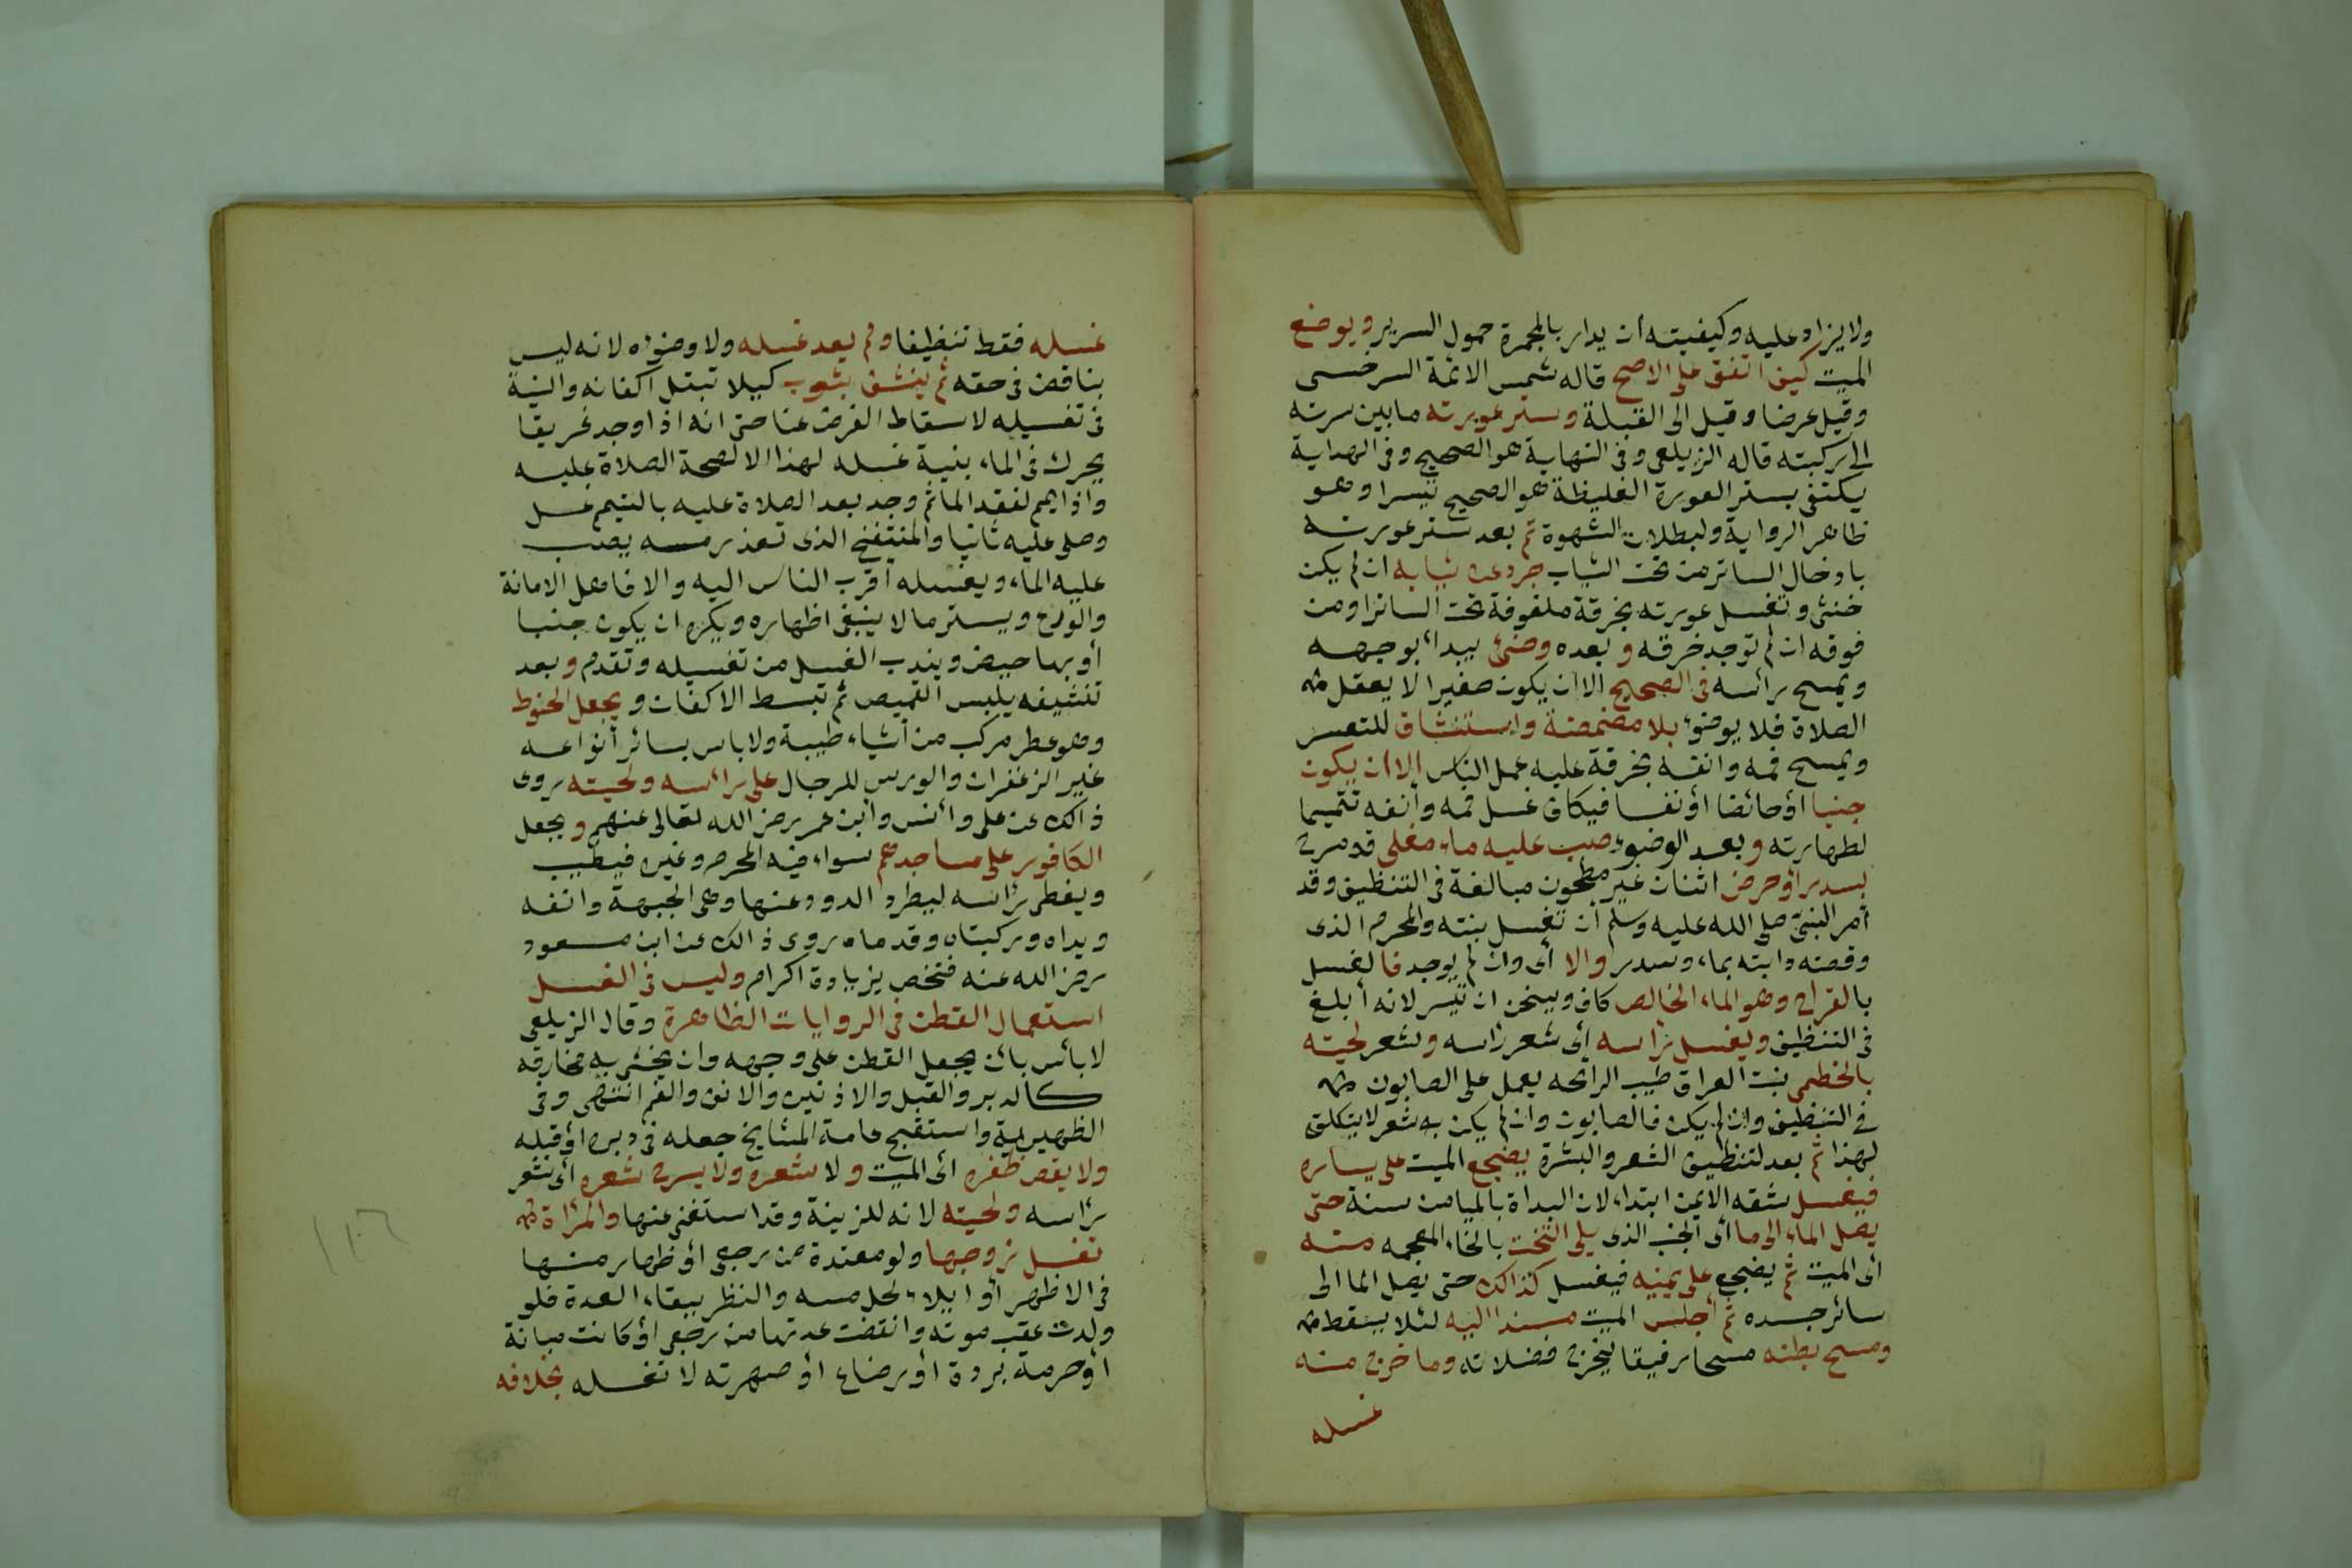 ولا يزاد عليه وكيفيته أن يدار بالمجمرة حول السرير ويوضع
الميت كيف اتفق على الاصح قاله شمس الائمة السرخسى
وقيل عرضا وقيل الى القبلة وستر عورته ما بين سرته
الى ركبته قاله الزيلعى وفى النهاية هو الصحيح وفى الهداية
يكتفى بستر العورة الغليظة هو الصحيح تيسرا وهو
ظاهر الرواية ولبطلان الشهوة ثم بعد ستر عورته
بادخال الساتر من تحت الثياب جرد عن ثيابه ان لم يكن
خنثى وتغسل عورته بخرقة ملفوفة تحت الساتر او من
فوقه ان لم توجد خرقه وبعده وضئ يبدأ بوجهه
ويمسح رأسه فى الصحيح الا ان يكون صغيرا لا يعقل
الصلاة فلا يوضؤ بلا مضمضة واستنشاق للتعسر
ويمسح فمه وانفه بخرقة عليه عمل الناس الا ان يكون
جنبا أو حائضا أو نفسا فيكلف غسل فمه وأنفه تتميما
لطهارته وبعد الوضوء صب عليه ماء مغلى قد مرج
بسدر أو حرض اشنان غير مطحون مبالغة فى التنظيف وقد
أمر النبى صلى الله عليه وسلم أن تغسل بنته والمحرم الذى
وقصته دابته بماء وسدر والا أى وان لم يوجد فالغسل
بالقراح وهو الماء الخالص كاف ويسخن ان تيسر لانه أبلغ
فى التنظيف ويغسل رأسه أى شعر رأسه وشعر لحيته
بالخطمى نبت العراق طيب الرائحه يعمل على الصابون
فى التنظيف وان لم يكن فالصابون وان لم يكن به شعر لا يتكلف
لهذا ثم بعد لتنظيف الشعر والبشرة يضجع الميت على يساره
فيغسل شقه الايمن ابتداء لان البداة بالميامن سنة حتى
يصل الماء الى ما أى الجنب الذى يلى التخت بالخاء المعجمه منه
أى الميت ثم يضجع على يمينه فيغسل كذالك حتى يصل الما الى
سائر جسده ثم أجلس الميت مسندا اليه لئلا يسقط
ومسح بطنه مسحا رفيقا ليخرج فضلاته وما خرج منه
غسله
غسله فقط تنظيفا ولم يعد غسله ولا وضوئه لانه ليس
بناقض فى حقه ثم ينشف بثوب كيلا تبتل اكفانه والنية
فى تغسيله لاسقاط الفرض عنا حتى انه اذا وجد غريقا
يحرك فى الماء بنية غسله لهذا الا لصحة الصلاة عليه
واذا يمم لفقد الما ثم وجد بعد الصلاة عليه بالتيمم غسل
وصلى عليه ثانيا والمنتفخ الذى تعذر مسه يصب
عليه الماء ويغسله أقرب الناس اليه والا فاهل الامانة
والورع ويستر ما لا ينبغى اظهاره ويكره ان يكون جنبا
أو بها حيض ويندب الغسل من تغسيله وتقدم وبعد
تنشيفه يلبس القميص ثم تبسط الاكفان ويجعل الحنوط
وهو عطر مركب من أشياء طيبة ولا باس بسائر أنواعه
غير الزعفران والورس للرجال على رأسه ولحيته روى
ذالك عن على وأنس وابن عمر رضى الله تعالى عنهم ويجعل
الكافور على مساجدهم سواء فيه المحرم وغيره فيطيب
ويغطى رأسه ليطرد الدود عنها وهى الجبهة وانفه
ويداه وركبتاه وقدماه روى ذالك عن ابن مسعود
رضى الله عنه فتخص بزيادة اكرام وليس فى الغسل
استعمال القطن فى الروايات الظاهرة وقال الزيلعى
لا بأس بأن يجعل القطن على وجهه وان يحشى به مخارقه
كالدبر والقبل والاذنين والانف والفم انتهى وفى
الظهيرية واستقبح عامة المشايخ جعله فى دبره أو قبله
ولا يقص ظفره أى الميت ولا شعره ولا يسرح شعره أى شعر
رأسه ولحيته لانه للزينة وقد استغنى عنها والمرأة
تغسل زوجها ولو معتدة من رجعى أو ظهار منها
فى الاظهر أو ايلاء لحل مسه والنظر ببقاء العدة فلو
ولدت عقب موته وانقضت عدتها من رجعى أو كانت مبانة
أو حرمة بردة أو رضاع أو صهرته لا تغسله بخلافه
١٠٦